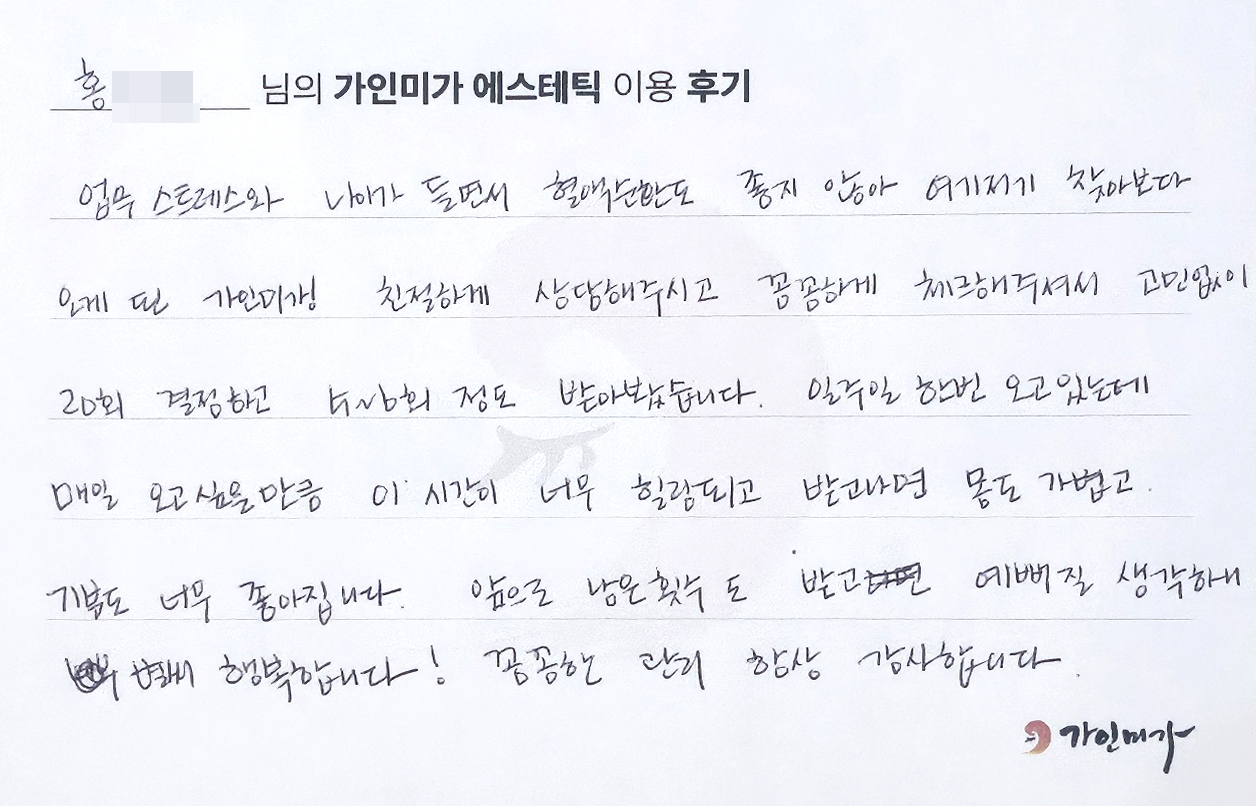 홍 님의 가인미가 에스테틱 이용 후기
업무 스트레스와 나이가 들면서 혈액순환도 좋지 않아 여기저기 찾아보다
오게 된 가인미가! 친절하게 상담해주시고 꼼꼼하게 체크해주셔서 고민없이
20회 결정하고 5~6회 정도 받아봤습니다. 일주일 한번 오고있는데
매일 오고싶을만큼 이 시간이 너무 힐링되고 받고나면 몸도 가볍고
기분도 너무 좋아집니다. 앞으로 남은횟수도 받고 예뻐질 생각하니
행복합니다! 꼼꼼한 관리 항상 감사합니다.
가인미가